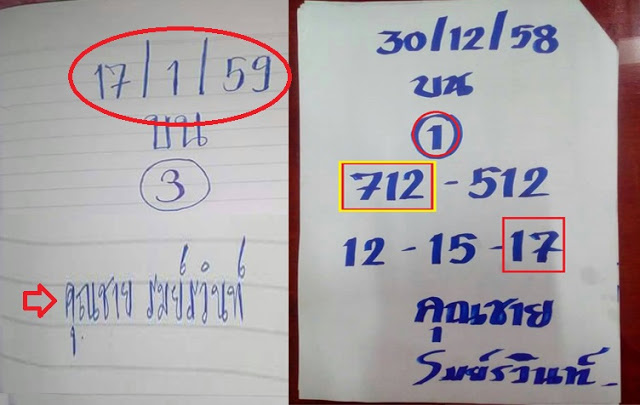 17/1/59
บน
3
คุณชาย รมย์รวินท์
30/12/58
บน
1
712 - 512
12 - 15 - 17
คุณชาย
รมย์รวินท์